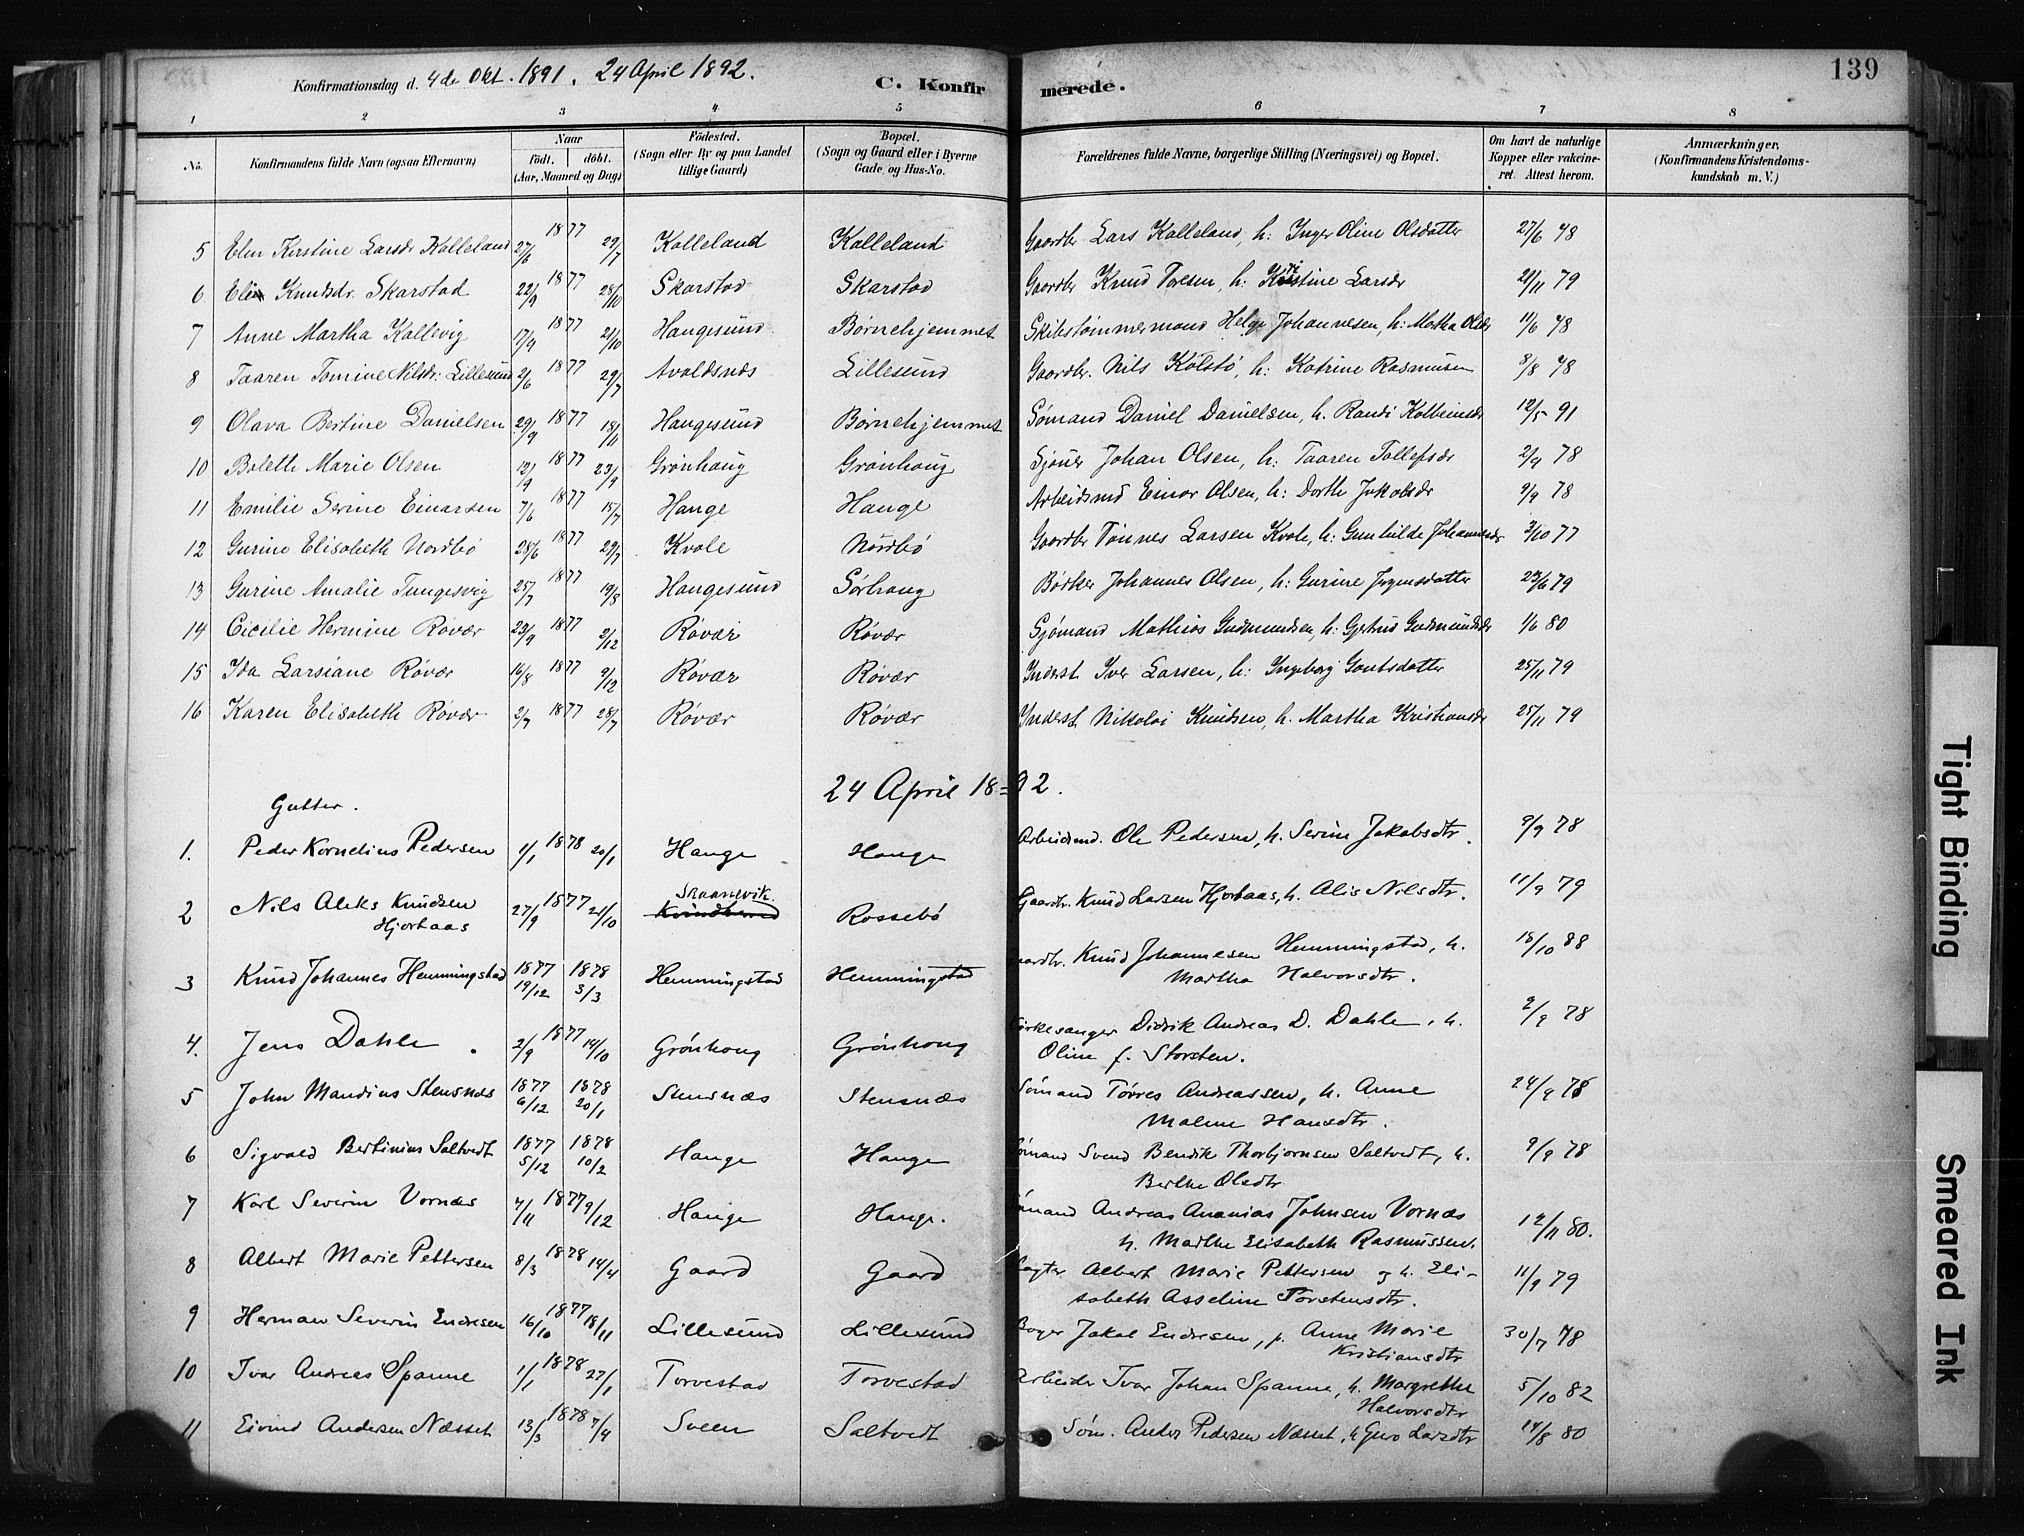 139
Konfirmationsdag d. 4de Okt. 1891. 24 April 1892.
C. Konfirmerede.
1 2 3 4 5 6 7 8
No. Konfirmandens fulde Navn (ogsaa Efternavn) Naar födt. döbt. (Aar, Maaned og Dag) Födested. (Sogn eller By og paa Landet tillige Gaard) Bopæl. (Sogn og Gaard eller i Byerne Gade og Hus-No. Forældrenes fulde Navne, borgerlige Stilling (Næringsvei) og Bopæl. Om havt de naturlige Kopper eller vakcineret. Attest herom. Anmærkninger. (Konfirmandens Kristendomskundskab m. V.)
5 Elen Kirstine Larsdr Kalleland 27/6 1877 29/7 Kalleland Kalleland Gaardbr Lars Kalleland, h: Inger Oline Olsdatter 27/6 48
6 Knudsdr. Skarstad 22/9 1877 28/10 Skarstad Skarstad Gaardbr Knud Toresen, h: Larsdr 21/11 79
7 Anne Martha Kallevig 17/9 1877 21/10 Haugesund Børnehjemmet Skibstømmermand Helge Johannesen, h: Martha Olsdr 11/6 48
8 Taaren Tomine Nilsdr: Lillesund 2/6 1877 29/7 Avaldsnæs Lillesund Gaardbr. Nils Kolstø, h: Katrine Rasmusen 8/8 48
9 Olava Bertine Danielsen 29/9 1877 18/11 Haugesund Børnehjemmet Sømand Daniel Danielsen, h. Randi Kolbeinsdr 12/5 91
10 Bolette Marie Olsen 12/9 1877 23/9 Grønhaug Grønhaug Sjouer Johan Olsen, h: Taaren Tollefsdr 2/9 78
11 Emilie Serine Einarsen 7/6 1877 15/7 Hauge Hauge Arbeidsmd Einar Olsen, h: Dorthe Jakobsdr 9/9 78
12 Gurine Elisabeth Nordbø 28/6 1877 29/7 Kvale Nordbø Gaardbr Tønnes Larsen Kvale, h: Gunhilde Johannesdr 3/10 77
13 Gurine Amalie Tungesvig 25/7 1877 19/8 Haugesund Sørhaug Bødker Johannes Olsen, h: Gurine Jørgensdatter 23/6 79
14 Cicilie Hermine Røvær 23/9 1877 2/12 Røvær Røvær Sjømand Mathias Gudmundsen, h: Gjertrud Gudmundsdr 1/6 80
15 Ida Larsiane Røvær 16/8 1877 9/12 Røvær Røvær Inderst Iver Larsen, h: Ingeborg Gautsdatter 25/11 79
16 Karen Elisabeth Røvær 2/7 1877 28/7 Røvær Røvær Inderst Nikolai Knudsen, h. Martha Kristiansdr 25/11 79
24 April 18=92.
Gutter.
1. Peder Kornelius Pedersen 1/1 1878 20/1 Hauge Hauge Arbeidsmd. Ole Pedersen, h. Serine Jakobsdtr. 9/9 78
Skaanevik.
2 Nils Aleks Knudsen 27/9 1877 21/10 Kvindherred Rossebø Gaardbr. Knud Larsen Hjortaas, h. Alis Nilsdtr. 11/9 79
Hjortaas
3 Knud Johannes Hemmingstad 1877 19/12 1878 3/3 Hemmingstad Hemmingstad Gaardbr. Knud Johannesen Hemmingstad, h. 18/10 88
Martha Halvorsdtr.
4. Jens Dahle. 2/9 1877 14/10 Grønhaug Grønhaug Kirkesanger Didrik Andreas D. Dahle, h. 9/9 78
Oline f. Storsten.
5 John Mandius Stensnæs 1877 6/12 1878 20/1 Stensnæs Stensnæs Sømand Tørres Andreassen, h. Anne 24/9 78
Malene Hansdtr.
6 Sigvald Bertinius Saltvedt 1877 5/12 1878 10/2 Hauge Hauge Sømand Svend Bendik Thorbjørnsen Saltvedt, h. 9/9 78
Berthe Olsdtr
7 Karl Severin Vornæs 7/11 1877 9/12 Hauge Hauge. Sømand Andreas Ananias Johnsen Vornæs 12/11 80.
h. Marthe Elisabeth Rasmussen.
8 Albert Marie Pettersen 8/3 1878 14/4 Gaard Gaard Albert Marie Pettersen og h. Eli-
11/9 79
sabeth Asseline Torstensdtr.
9 Herman Severin Endresen 16/10 1877 18/11 Lillesund Lillesund Bager Jakob Endresen, h. Anne Marie 30/7 78
Kristiansdtr
10 Ivar Andreas Spanne 1/1 1878 27/1 Torvestad Torvestad Arbeider Ivar Johan Spanne, h. Margrethe 5/10 82
Halvorsdtr
11 Eivind Andersen Næsset 13/3 1878 7/4 Sveen Saltvedt Søm. Anders Pedersen Næsset, h Guro Larsdtr 14/8 80
Tight Binding
Smeared Ink